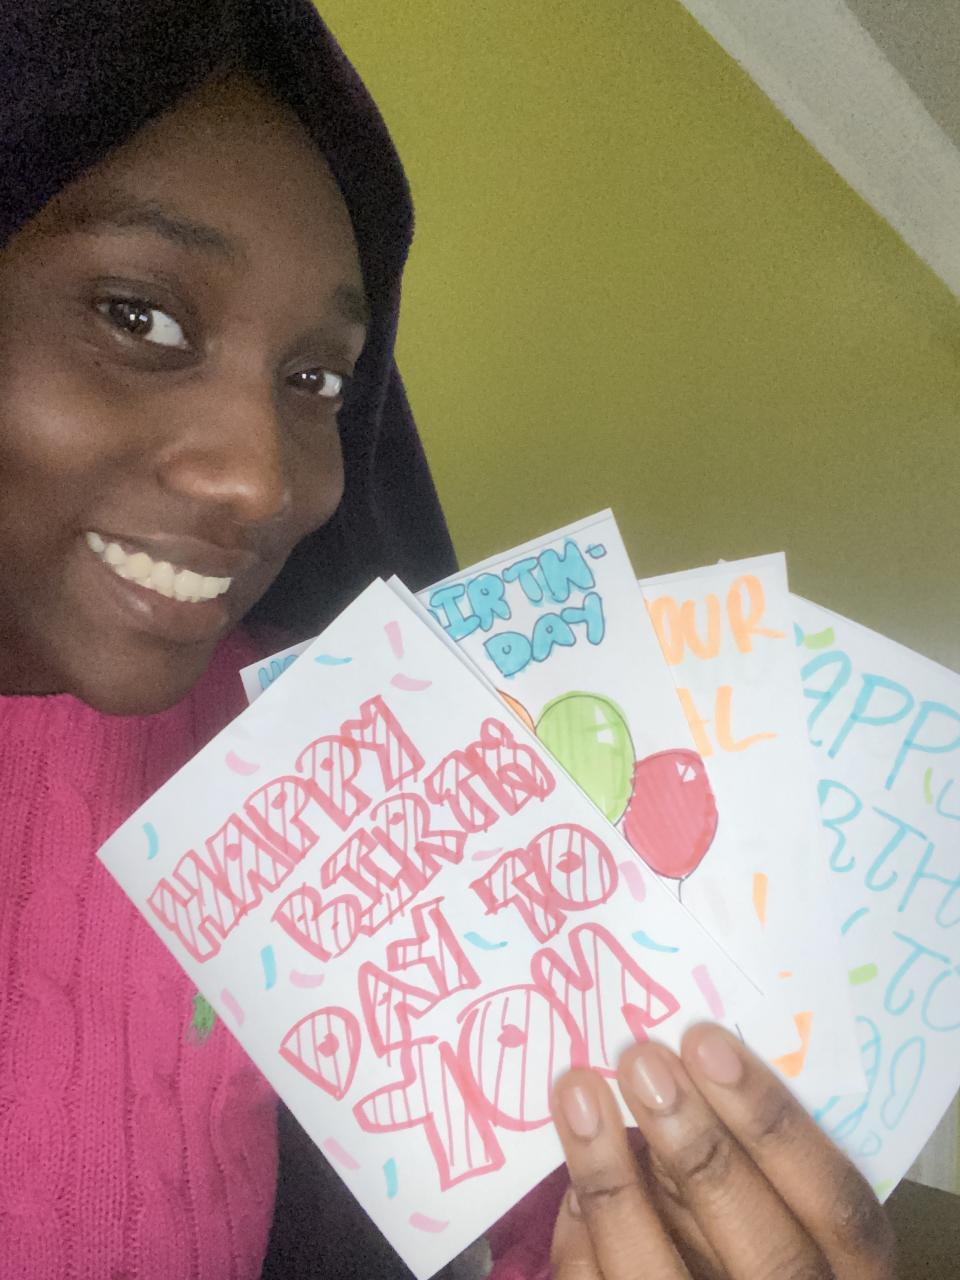 HAPPY
BIRTH
DAY TO
YOU
BIRTH-
DAY
OUR
APPY
RTH
TO